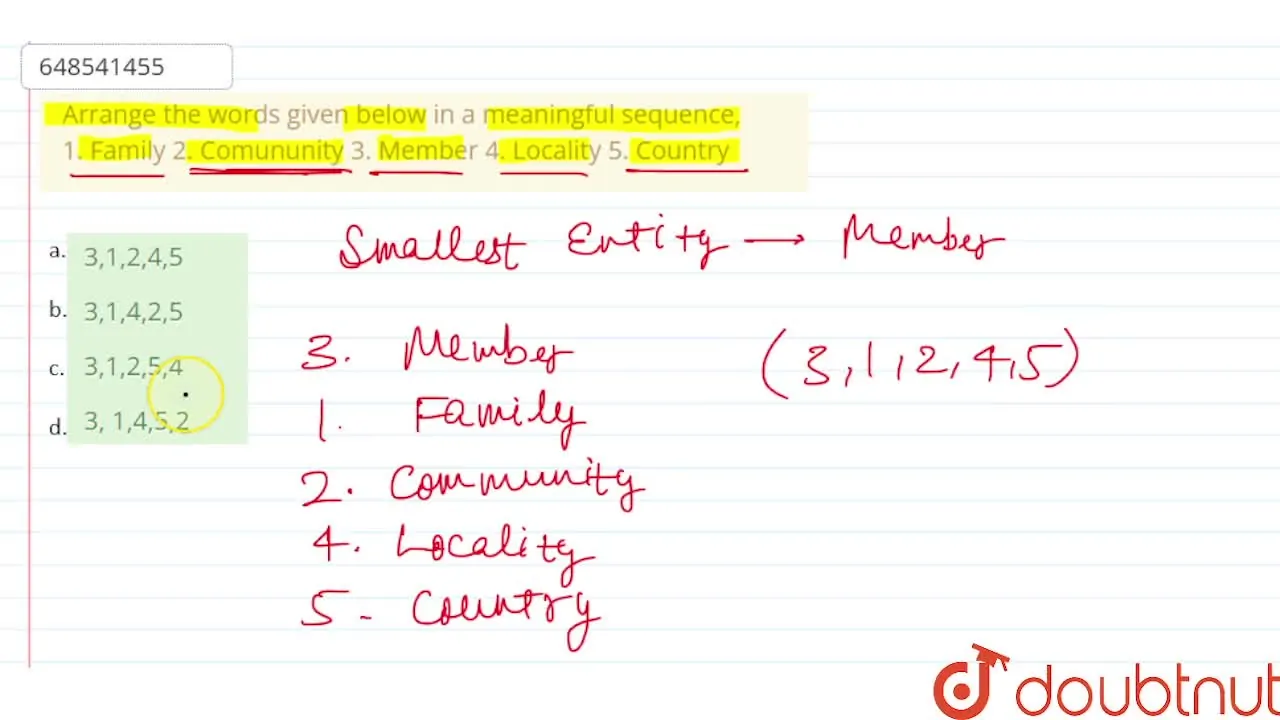 648541455
Arrange the words given below in a meaningful sequence,
1. Family 2. Comununity 3. Member 4. Locality 5. Country
Smallest Entity → Member
a. 3,1,2,4,5
b. 3,1,4,2,5
c. 3,1,2,5,4
d. 3, 1,4,5,2
3. Member
1. Family
2. Community
4. Locality
5 - Country
(3,1,2,4,5)
doubtnut